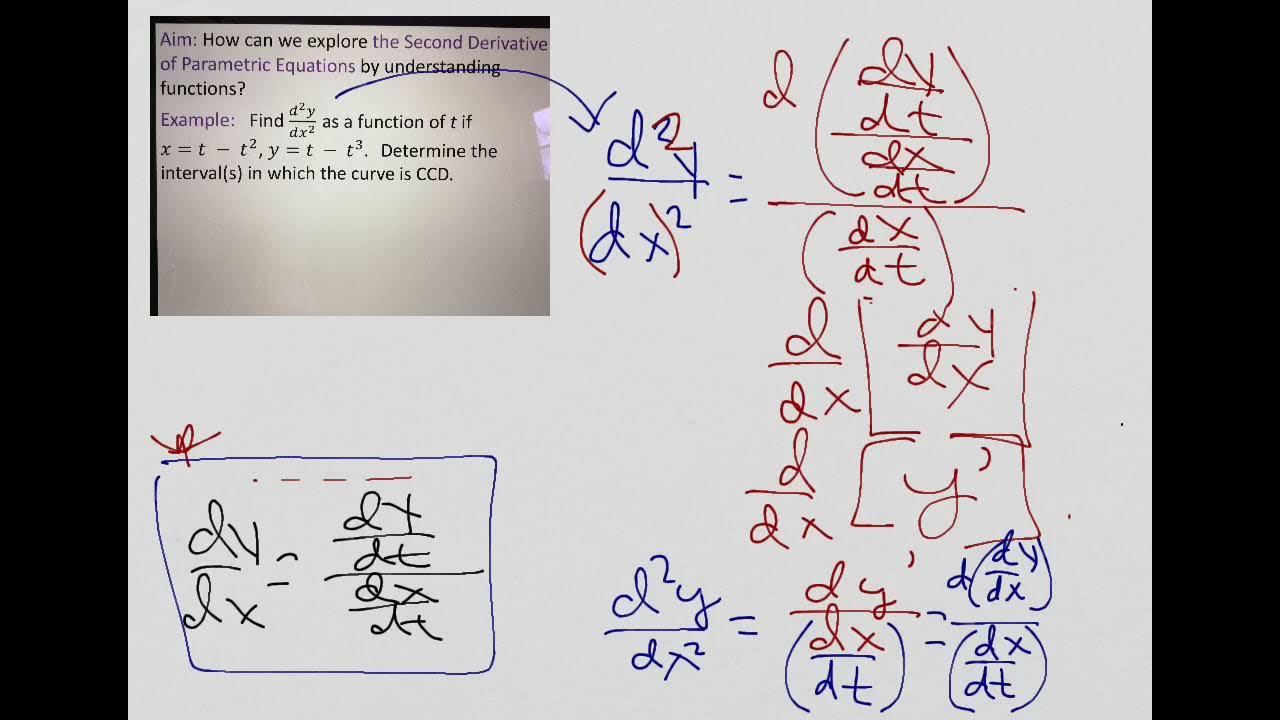 Aim: How can we explore the Second Derivative
of Parametric Equations by understanding
functions?
Example: Find d²y/dx² as a function of t if
x = t − t², y = t − t³. Determine the
interval(s) in which the curve is CCD.
d²y/(dx)² = d((dy/dt)/(dx/dt))/(dx/dt)
d/dx [dy/dx]
d/dx [y']
dy/dx = (dy/dt)/(dx/dt)
d²y/dx² = dy'/(dx/dt) = d(dy/dx)/(dx/dt)